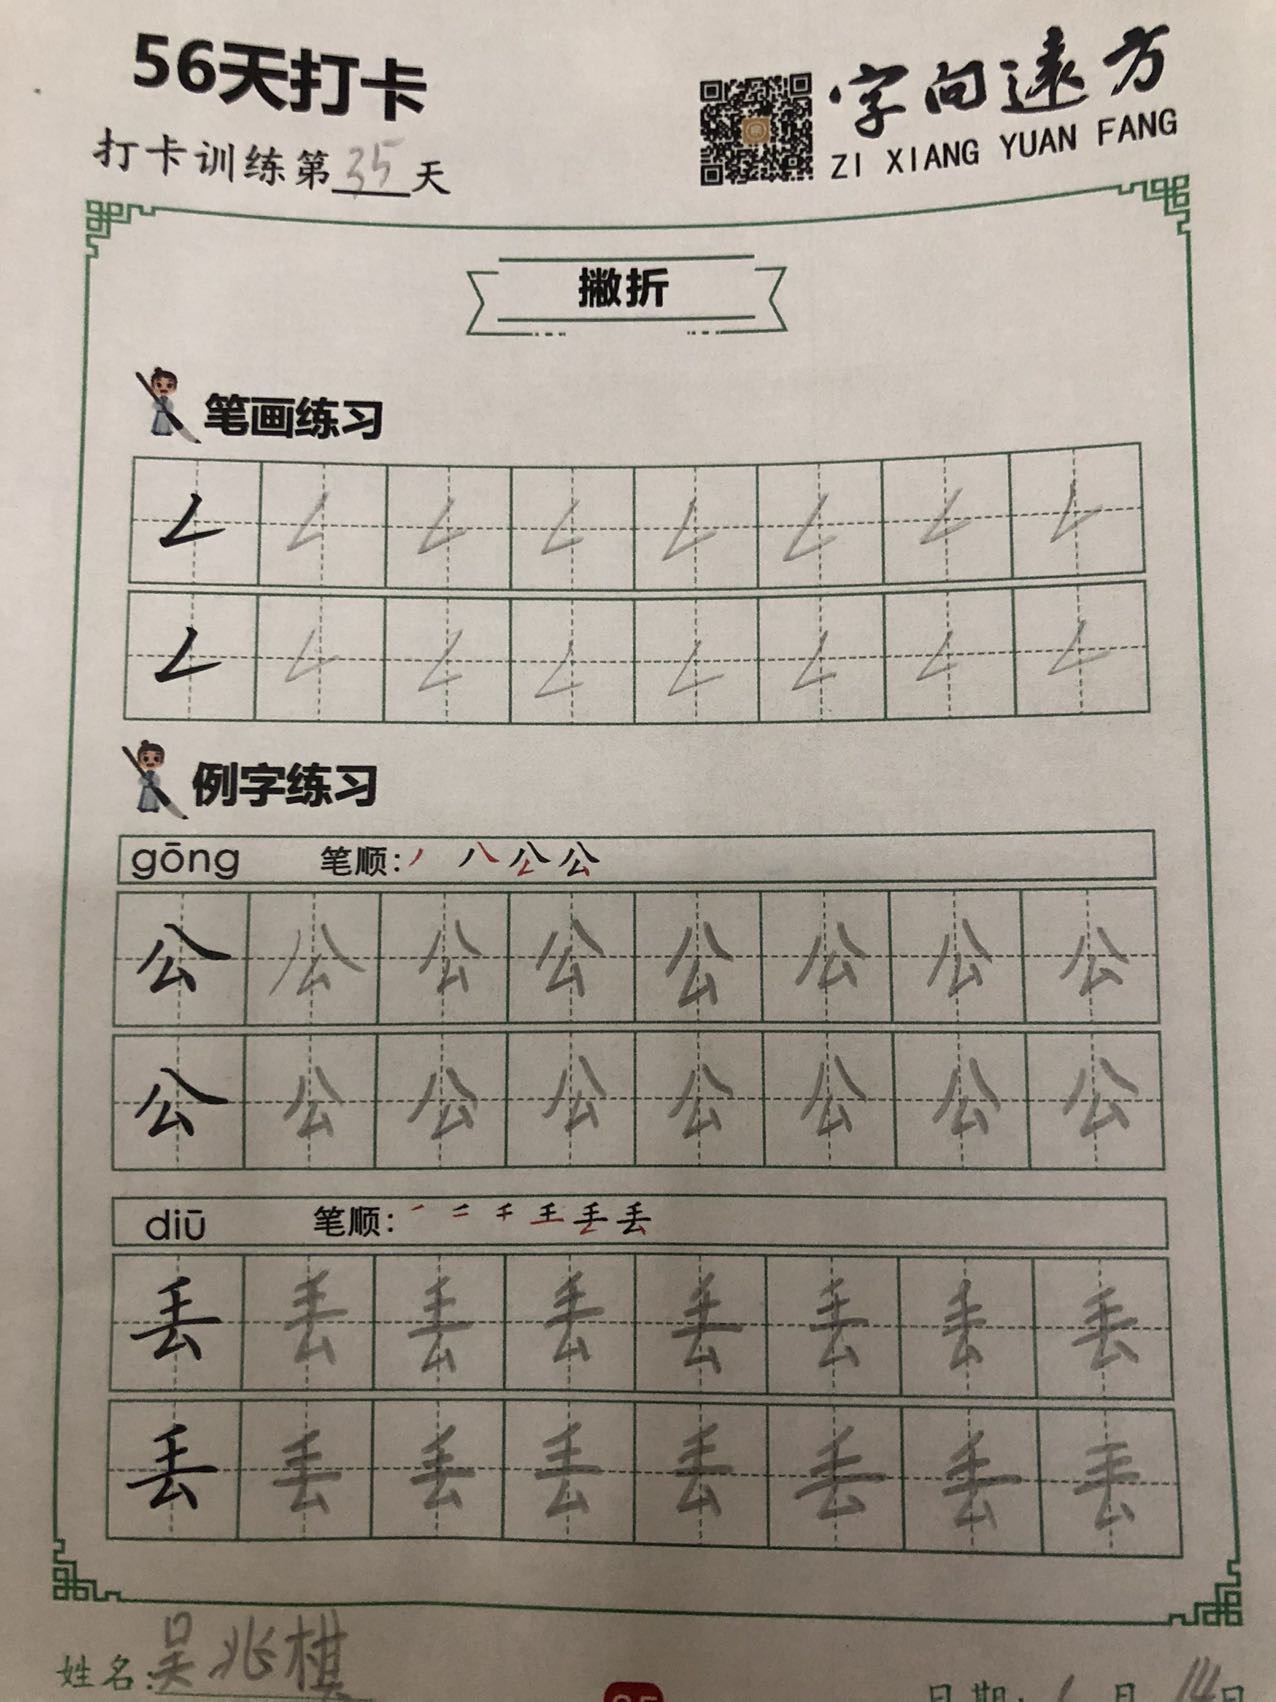 56天打卡
字向遠方
ZI XIANG YUAN FANG
打卡训练第35天
撇折
笔画练习
例字练习
gōng 笔顺:
公 公 公 公 公 公 公 公
公 公 公 公 公 公 公 公
diū 笔顺:
丢 丢 丢 丢 丢 丢 丢 丢
丢 丢 丢 丢 丢 丢 丢 丢
姓名:吴兆棋
日期: 月14日